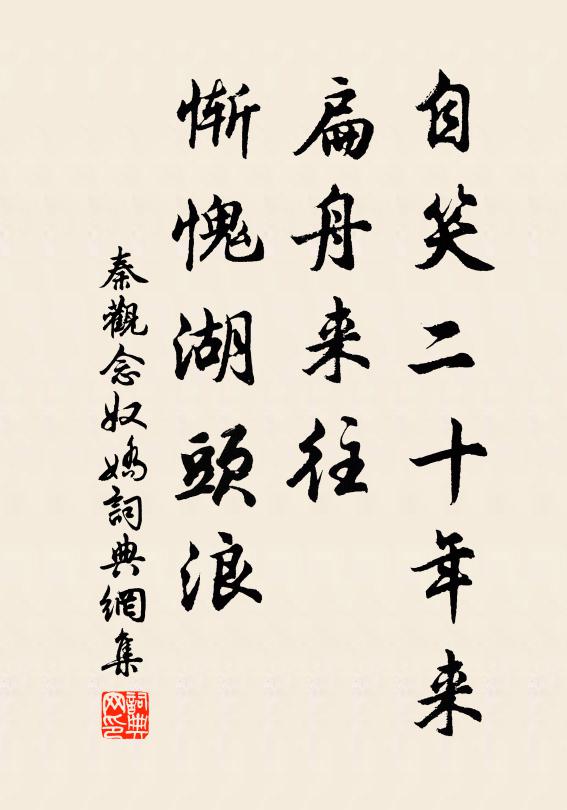 自笑二十年来
扁舟来往
惭愧湖頭浪
秦觀念奴嬌詞典網集
詞典网印